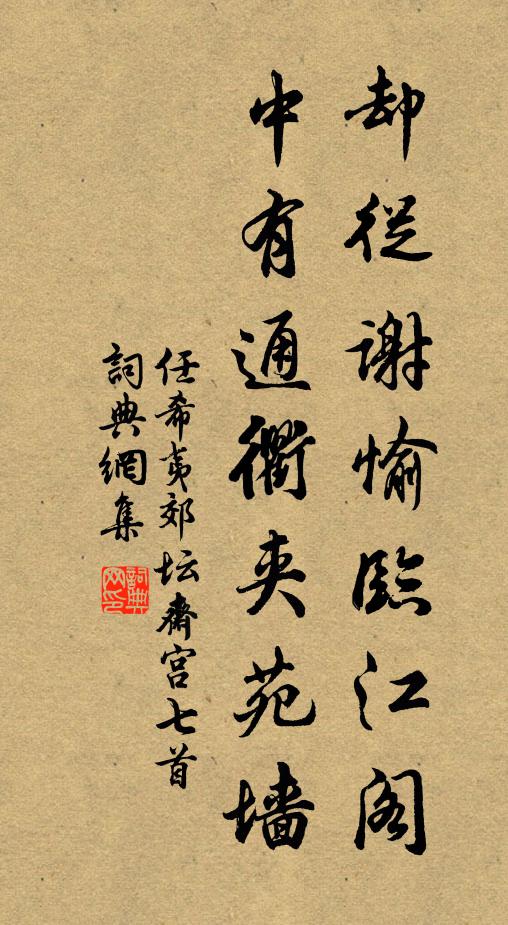 却從謝愉臨江閣
中有通衢夾苑墙
任希夷郊坛齋宫七首
詞典網集
詞典网印